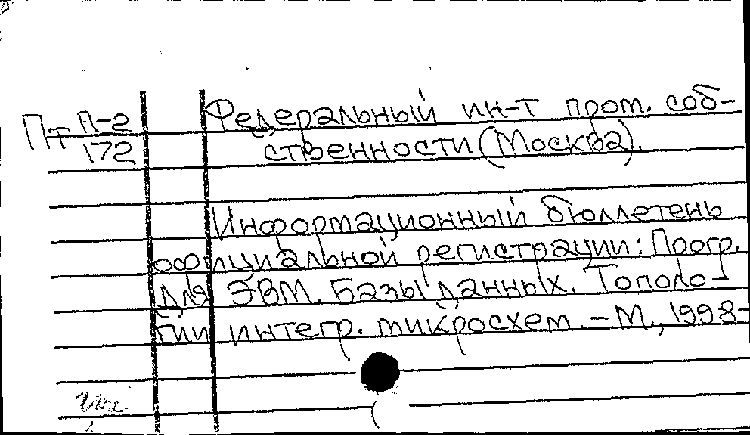 Пт П-2
172
Федеральный ин-т пром. соб-
ственности (Москва).
Информационный бюллетень
официальной регистрации: Прогр.
для ЭВМ. Базы данных. Тополо-
гии интегр. микросхем. – М., 1998-